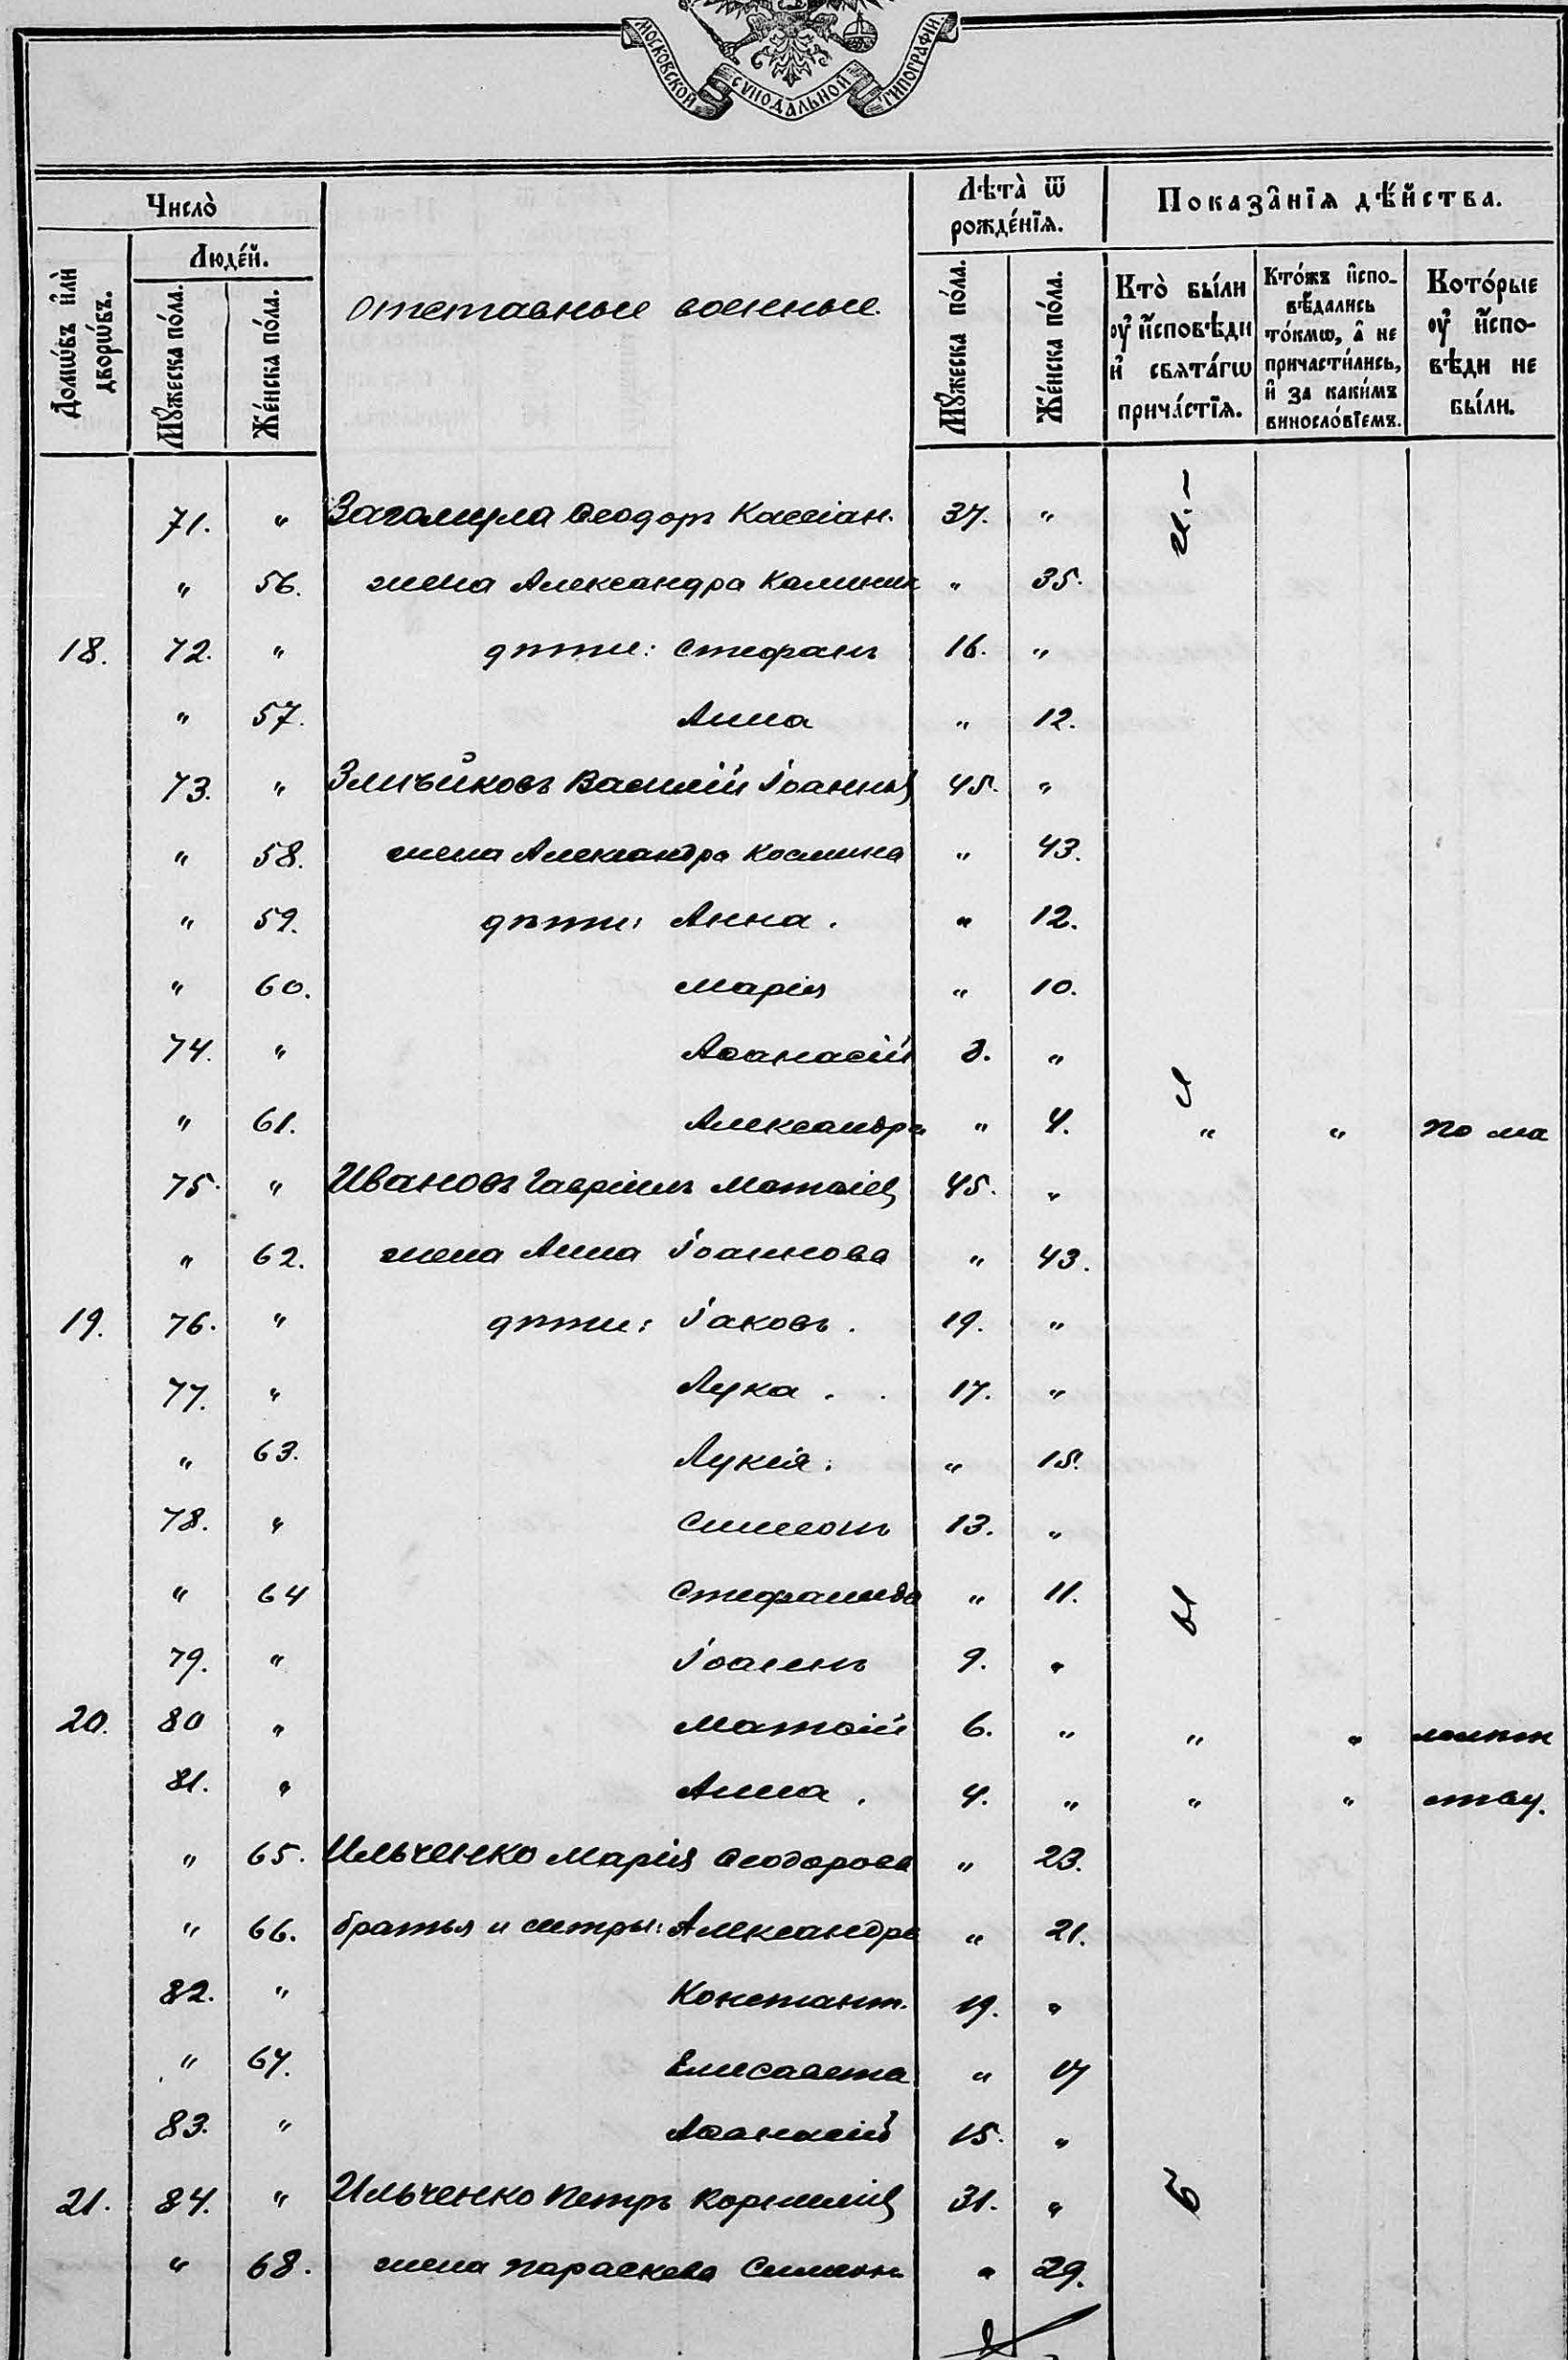 МОСКОВСКОЙ СѴНОДАЛЬНОЙ ТИПОГРАФІИ
Число̀
Домѡ́въ и҆лѝ дворѡ́въ.
Люде́й.
Мꙋ́жеска по́ла.
Же́нска по́ла.
Отставные военные.
Лѣта̀ ѿ рожде́нїѧ.
Мꙋ́жеска по́ла.
Же́нска по́ла.
Показа̂нїѧ дѣ́йства.
Кто̀ бы́ли ᲂу҆ и҆́сповѣди и҆ свѧта́гѡ прича́стїѧ.
Кто́жъ и҆спо- вѣ́дались то́кмѡ, а҆ не причасти́лись, и҆ за каки́мъ виносло́вїемъ.
Кото́рые ᲂу҆ и҆́спо- вѣди не бы́ли.
71. " Загомула Ѳеодоръ Кассіан. 37. "
" 56. жена Александра Калинин " 35.
18. 72. " дѣти: Стефанъ 16. "
" 57. Анна " 12.
73. " Василій Іоаннов 45. "
" 58. жена Александра Космина " 43.
" 59. дѣти: Анна. " 12.
" 60. Марія " 10.
74. " Аѳанасій 8. "
" 61. Александра " 4. " " по ма
75. " Ивановъ Гавріилъ Матѳіев 45. "
" 62. жена Анна Іоаннова " 43.
19. 76. " дѣти: Іаковъ. 19. "
77. " Лука. 17. "
" 63. Лукія. " 15.
78. " Симеонъ 13. "
" 64 Стефанида " 11. ы
79. " Іоаннъ 9. "
20. 80 " Матѳій 6. " " " лолѣт
81. " Анна. 4. " " " ству.
" 65. Ильченко Марія Ѳеодорова " 23.
" 66. братья и сестры: Александра " 21.
82. " Константин. 19. "
" 67. Елисавета " 17
83. " Аѳанасій 15. "
21. 84. " Ильченко Петръ Корнилів 31. "
" 68. жена Параскева Симеон " 29.